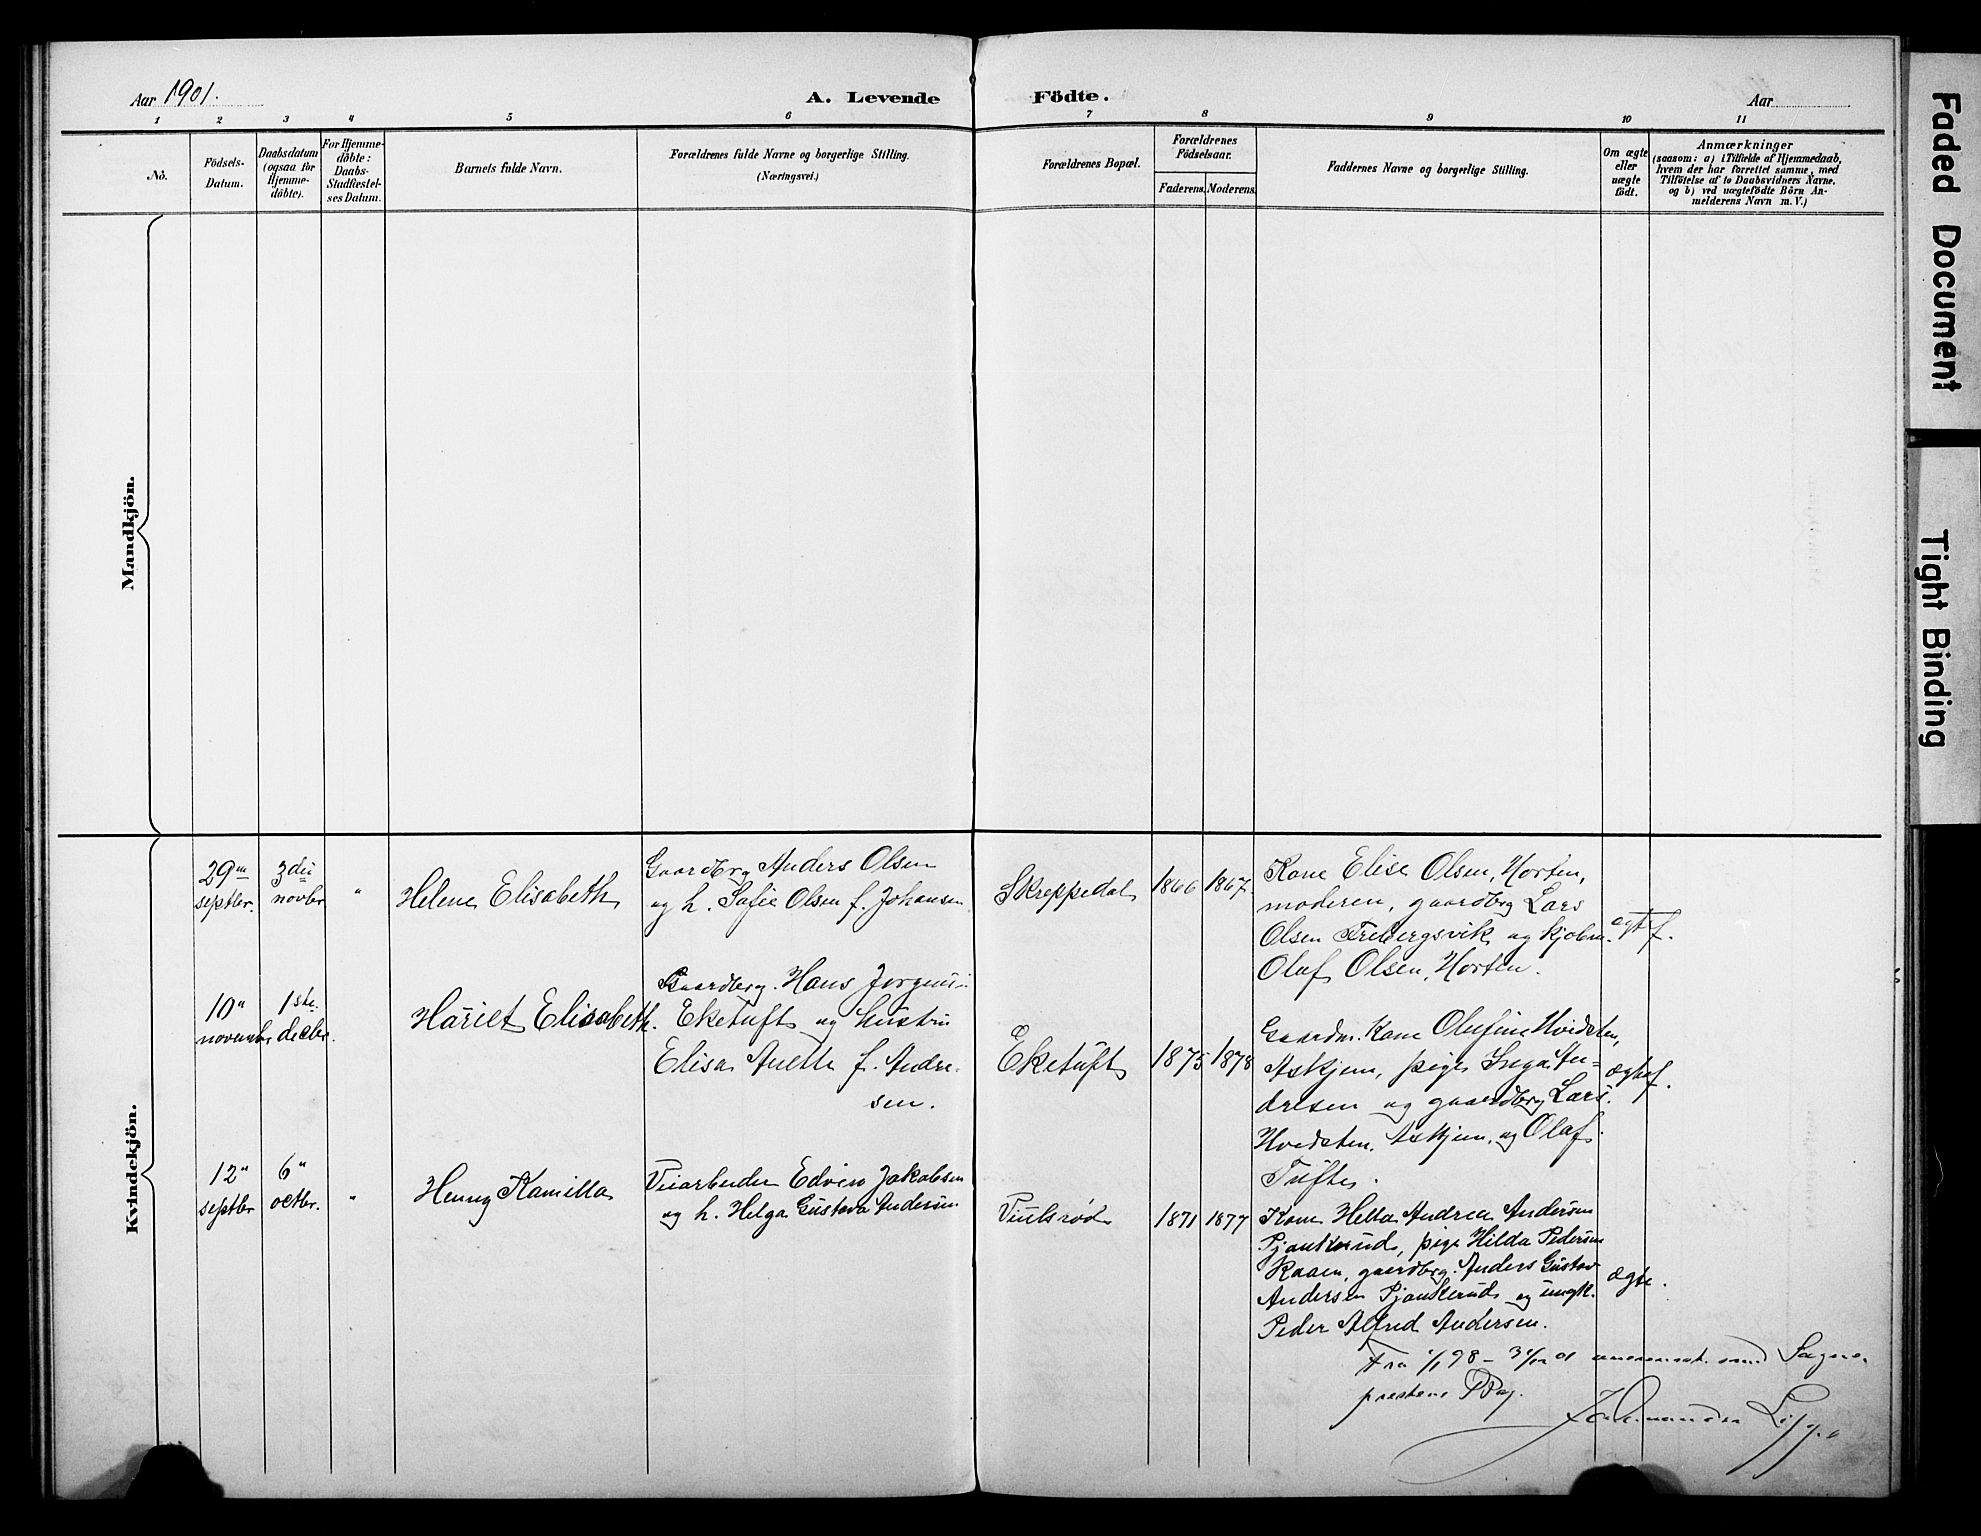 Aar 1901.
A. Levende Födte.
Aar
1 2 3 4 5 6 7 8 9 10 11
No.
Födsels-
Datum.
Daabsdatum
(ogsaa for
Hjemme-
döbte).
For Hjemme-
döbte:
Daabs-
Stadfæstel-
ses Datum.
Barnets fulde Navn.
Forældrenes fulde Navne og borgerlige Stilling.
(Næringsvei.)
Forældrenes Bopæl.
Forældrenes
Födselsaar.
Faderens. Moderens.
Faddernes Navne og borgerlige Stilling.
Om ægte
eller
uægte
födt.
Anmærkninger
(saasom: a) i Tilfælde af Hjemmedaab,
hvem der har forrettet samme, med
Tilföielse af to Daabsvidners Navne,
og b) ved uægtefödte Börn An-
melderens Navn m. V.)
Mandkjön.
Kvindekjön.
29
septbr.
3die
novbr
"
Helene Elisabeth
Gaardbrg Anders Olsen
og h. Sofie Olsen f. Johansen
Skreppedal
1866
1867.
Kone Elise Olsen, Horten,
moderen, gaardbrg Lars
Olsen Trebergsvik og
Olaf Olsen, Horten.
10"
november
1ste
decbr.
Hariet Elisabeth.
Gaardbrg. Hans
Eketuft og hustru
Elisa Anette f. Andre-
sen.
Eketuft
1875
1878
Gaardm. Kone Olufine Hvidsten,
Askjem, pige Inga An-
dresen og gaardbrg Lars
Hvidsten, Askjem, og Olaf
Tufte.
12"
septbr
6"
octbr.
"
Henny Kamilla
Veiarbeider Edvin Jakobsen
og h. Helga Gustava Andersen
Viulsrød
1871
1877
Kone Andrea Andersen
Pjonkerud, pige Hilda Pedersen
Kaaen, gaardbrg. Anders Gustav
Andersen Pjonkerud og ungk.
Peder Alfred Andersen.
ægte.
Fra 1/1 98 - 31/12 01 med Sogne-
prestens
Faded Document
Tight Binding